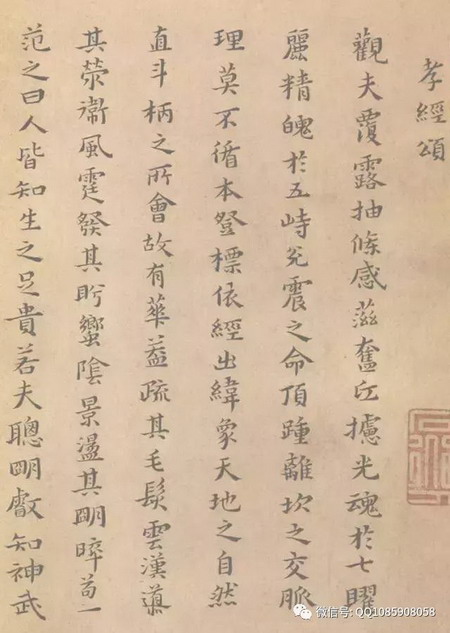 孝經頌
觀夫覆露抽條感滋奮攄光魂於七曜
麗精魄於五峙兊震之命頂踵離坎之交脈
理莫不循本登標依經出緯象天地之自然
直斗柄之所會故有華葢疏其毛髮雲漢
其滎衛風霆發其盻蠁陰景盪其明晬苟一
范之曰人皆知生之足貴若夫聰明叡知神武
微信号: QQ1085908058